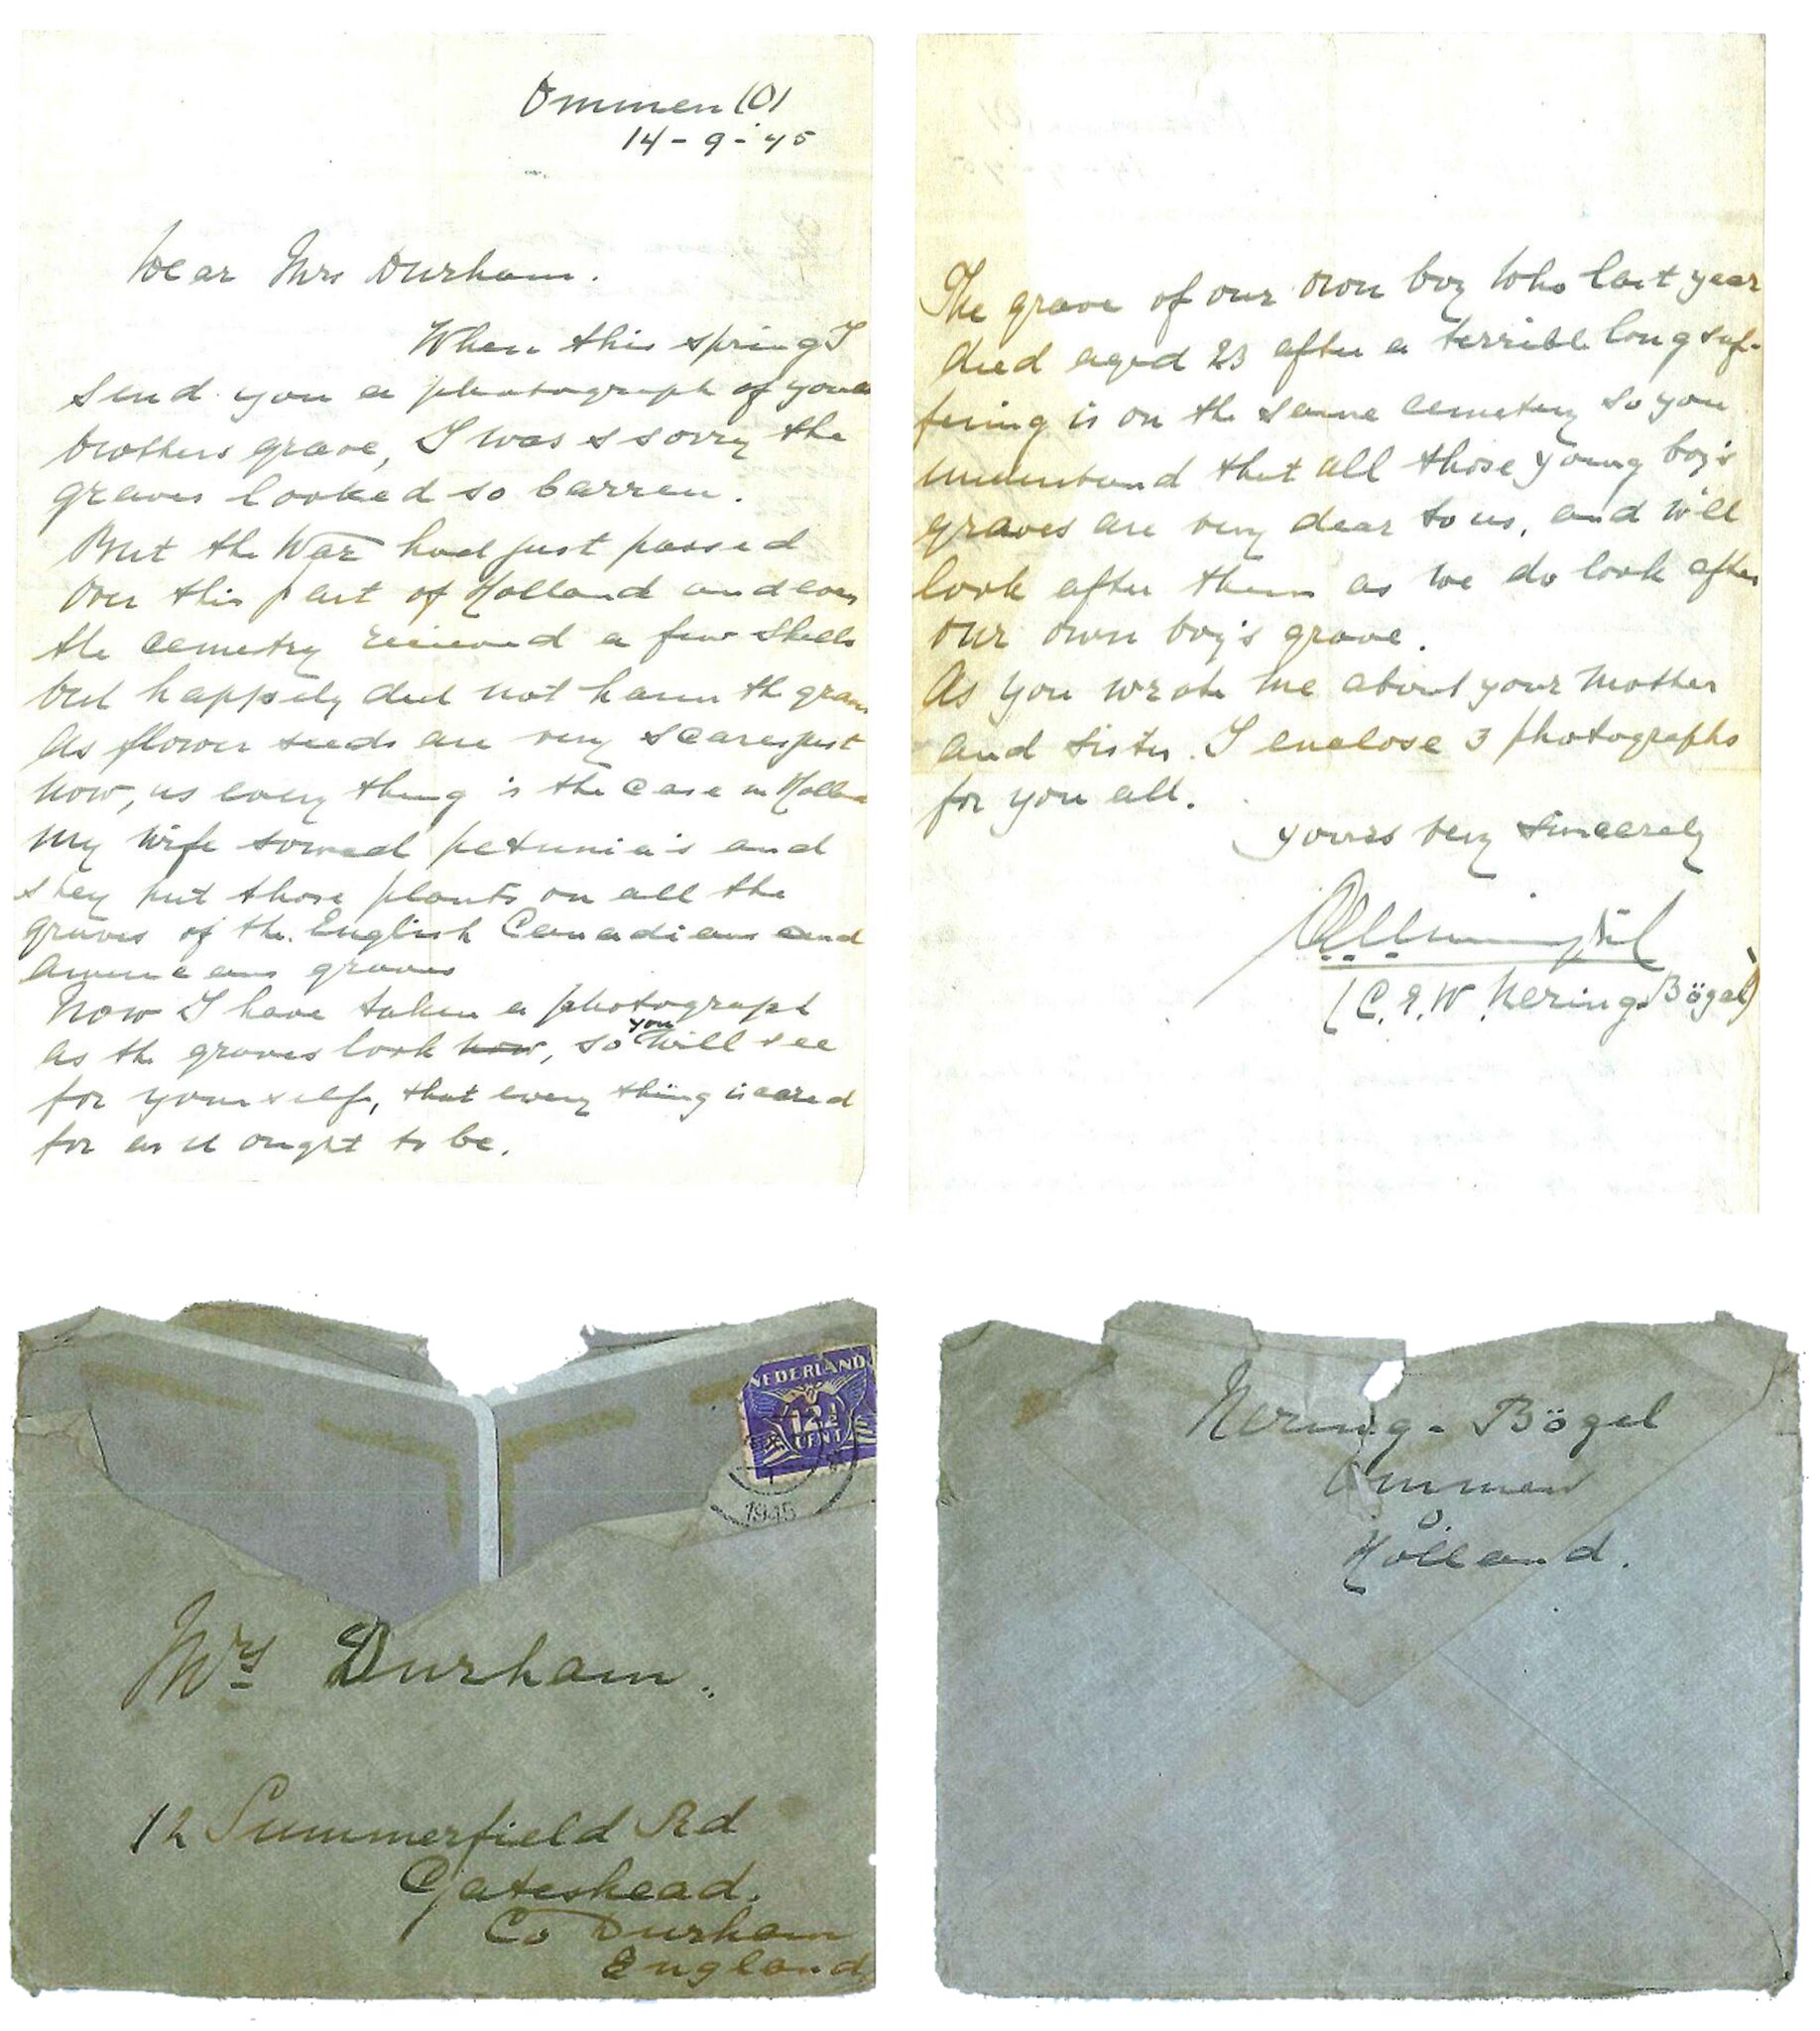 Ommen (O)
14-9-'45
Dear Mrs Durham.
When this spring I
send you a photograph of your
brothers grave, I was s sorry the
graves looked so barren.
But the War had just passed
over this part of Holland and even
the cemetry recieved a few shells
but happely did not harm the graves
As flower seeds are very scarce just
now, as every thing is the case in Holland
my wife sowed petunia's and
they put those plants on all the
graves of the English Canadians and
Americans graves
Now I have taken a photograph
as the graves look now, so you will see
for yourself, that every thing is cared
for as it ought to be.
The grave of our own boy who last year
died aged 23 after a terrible long suf-
fering is on the same cemetery so you
understand that all those young boy's
graves are very dear to us, and will
look after them as we do look after
our own boy's grave.
As you wrote me about your mother
and sister. I enclose 3 photographs
for you all.
yours very sincerely
(C.E.W. Nering-Bögel)
NEDERLAND
12½
CENT
1945
Mrs Durham.
12 Summerfield Rd
Gateshead.
Co Durham
England
Nering-Bögel
Ommen
O.
Holland.